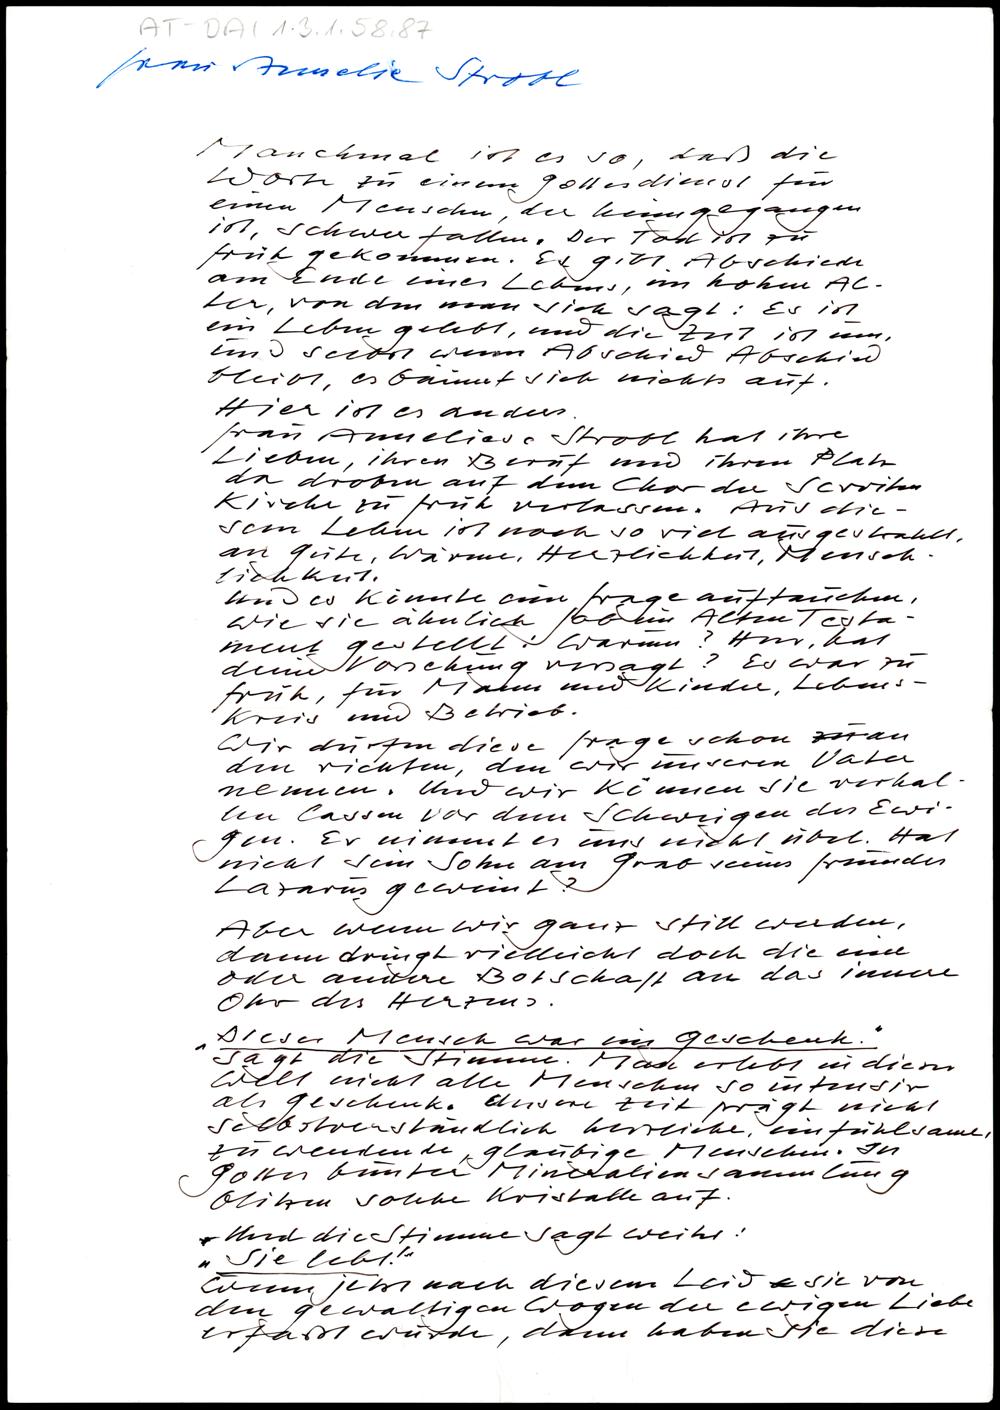 AT-DAI 1.3.1.58.87
Frau Annelie Strobl
Manchmal ist es so, daß die
Worte zu einem Gottesdienst für
einen Menschen, der heimgegangen
ist, schwer fallen. Der Tod ist zu
früh gekommen. Es gibt Abschiede
am Ende eines Lebens, im hohen Al-
ter, von dem man sich sagt: Es ist
ein Leben gelebt, und die Zeit ist um,
und selbst wenn Abschied Abschied
bleibt, es bäumt sich nichts auf.
Hier ist es anders.
Frau Anneliese Strobl hat ihre
Lieben, ihren Beruf und ihren Platz
da droben auf dem Chor der Serviten
Kirche zu früh verlassen. Aus die-
sem Leben ist noch so viel ausgestrahlt,
an Güte, Wärme, Herzlichkeit, Mensch-
lichkeit.
Und es könnte eine Frage auftauchen,
wie sie ähnlich Job im Alten Testa-
ment gestellt: Warum? Herr, hat
deine Vorsehung versagt? Es war zu
früh, für Mann und Kinder, Lebens-
kreis und Betrieb.
Wir dürfen diese Frage schon an
den richten, den wir unseren Vater
nennen. Und wir können sie verhal-
len lassen vor dem Schweigen des Ewi-
gen. Er nimmt es uns nicht übel. Hat
nicht sein Sohn am Grab seines Freundes
Lazarus geweint?
Aber wenn wir ganz still werden,
dann dringt vielleicht doch die eine
oder andere Botschaft an das innere
Ohr des Herzens.
„Dieser Mensch war ein Geschenk."
sagt die Stimme. Man erlebt in dieser
Welt nicht alle Menschen so intensiv
als Geschenk. Unsere Zeit prägt nicht
selbstverständlich herzliche, einfühlsame,
zuwendende, gläubige Menschen. In
Gottes bunter Mineraliensammlung
blitzen solche Kristalle auf.
Und die Stimme sagt weiter:
„Sie lebt!"
Wenn jetzt nach diesem Leid sie von
den gewaltigen Wogen der ewigen Liebe
erfaßt wurde, dann haben Sie diese